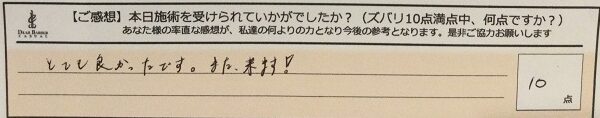 【ご感想】本日施術を受けられていかがでしたか？（ズバリ10点満点中、何点ですか？）
あなた様の率直な感想が、私達の何よりの力となり今後の参考となります。是非ご協力お願いします
DEAR BARBER
とても良かったです。また、来ます!
10
点